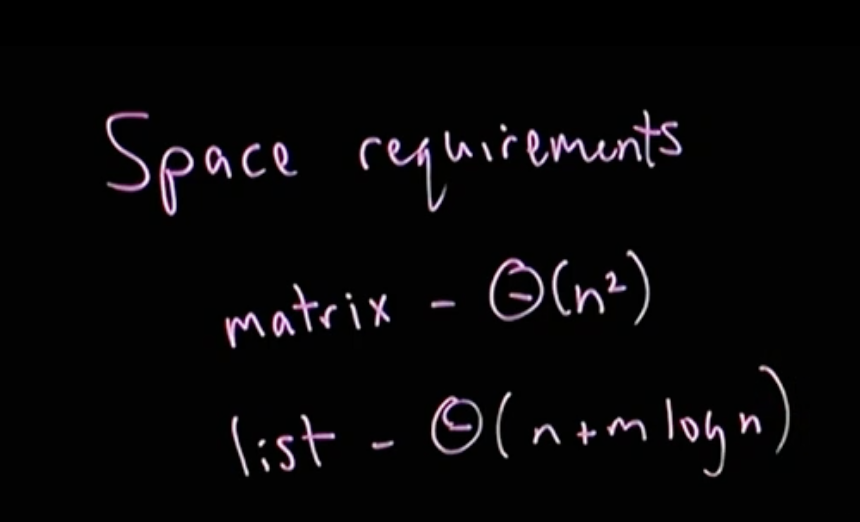 Space requirements
matrix - Θ(n²)
list - Θ(n+m log n)